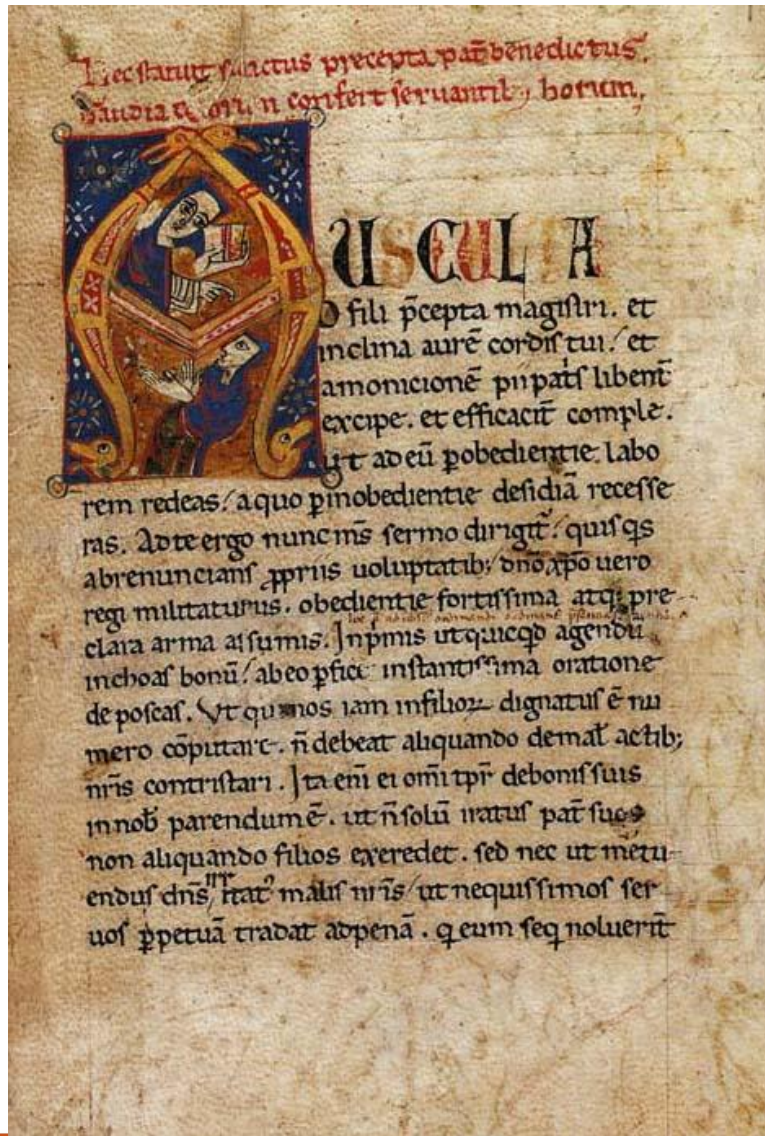 Hec statuit sanctus precepta pat̄ benedictus.
Gaudia q̄ confert seruantib; horum.
AUSCULTA
O fili p̄cepta magistri. et
inclina aurē cordis tui. et
amonicionē pii pat̄s libent̄
excipe. et efficacit̄ comple.
ut ad eū ꝑ obedientie labo
rem redeas. a quo ꝑ inobedientie desidiā recesse
ras. Ad te ergo nunc m̄s sermo dirigit̄. quisq̄s
abrenuncians ꝓpriis uoluptatib; dn̄o xp̄o uero
regi militaturus. obedientie fortissima atq; pre
clara arma assumis. In p̄mis ut quicq̄d agendū
inchoas bonū. ab eo ꝑfici instantissima oratione
deposcas. Ut qui nos iam in filioꝝ dignatus ē nu
mero cōputare. n̄ debeat aliquando de mal̄ actib;
nr̄is contristari. Ita eni̅ ei omi̅ tp̄r de bonis suis
in nob̄ parendum ē. ut n̄ solū iratus pat̄ suos
non aliquando filios exeredet. sed nec ut metu
endus dn̄s iritat᾽ malis nr̄is. ut nequissimos ser
uos ꝑpetuā tradat ad penā. q̄ eum seq̄ noluerit̄